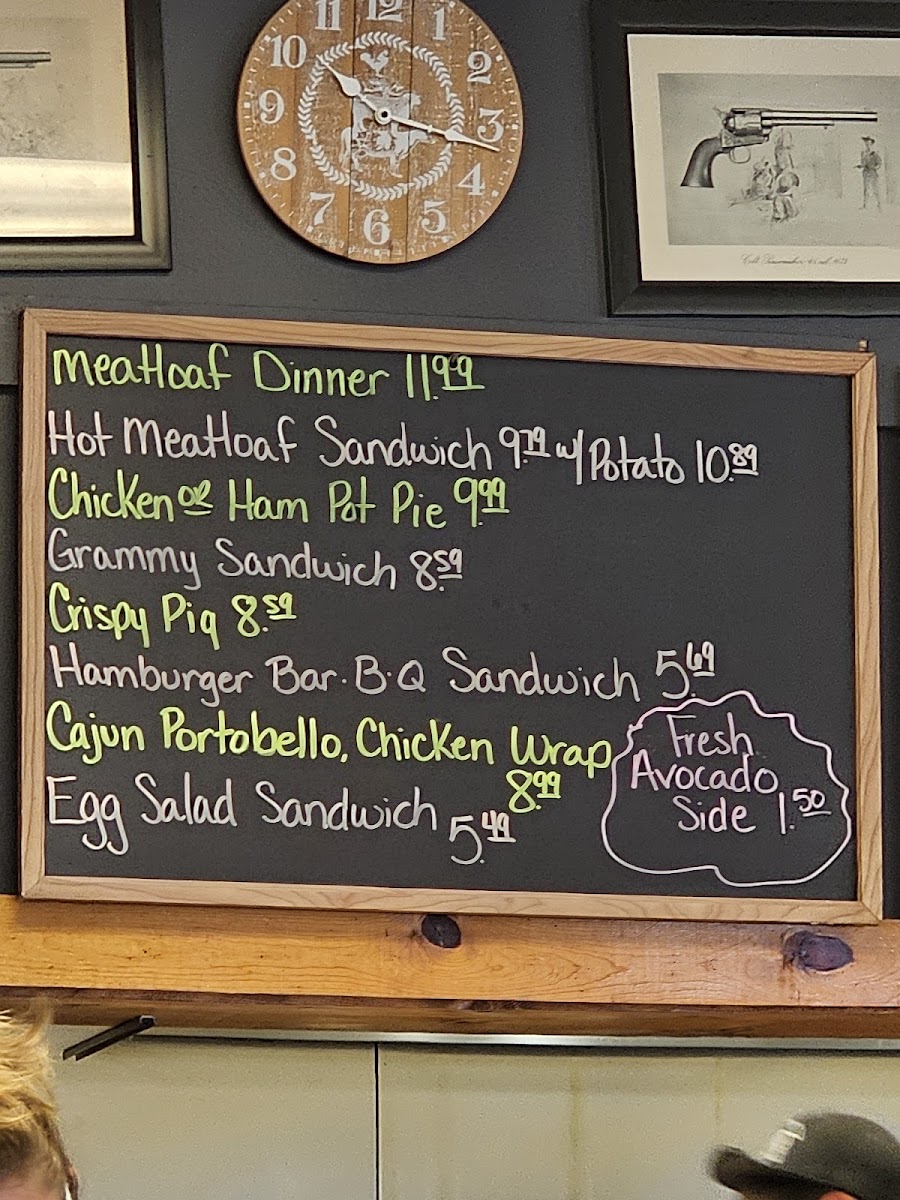 11 12 1
10 2
9 3
8 4
7 6 5
Meatloaf Dinner 11.99
Hot Meatloaf Sandwich 9.79 w/Potato 10.89
Chicken or Ham Pot Pie 9.99
Grammy Sandwich 8.59
Crispy Pig 8.59
Hamburger Bar.B.Q Sandwich 5.69
Cajun Portobello, Chicken Wrap
8.99
Egg Salad Sandwich 5.49
Fresh
Avocado
Side 1.50